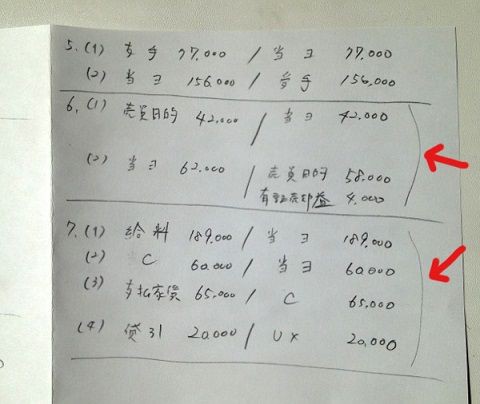 5.(1) 支手 77.000 / 当ヨ 77.000
(2) 当ヨ 156.000 / 受手 156,000
6.(1) 売買目的 42,000 / 当ヨ 42.000
(2) 当ヨ 62.000 / 売買目的 58.000
有証売却益 4.000
7.(1) 給料 189.000 / 当ヨ 189.000
(2) C 60,000 / 当ヨ 60,000
(3) 支払家賃 65,000 / C 65,000
(4) 貸引 20,000 / U× 20,000